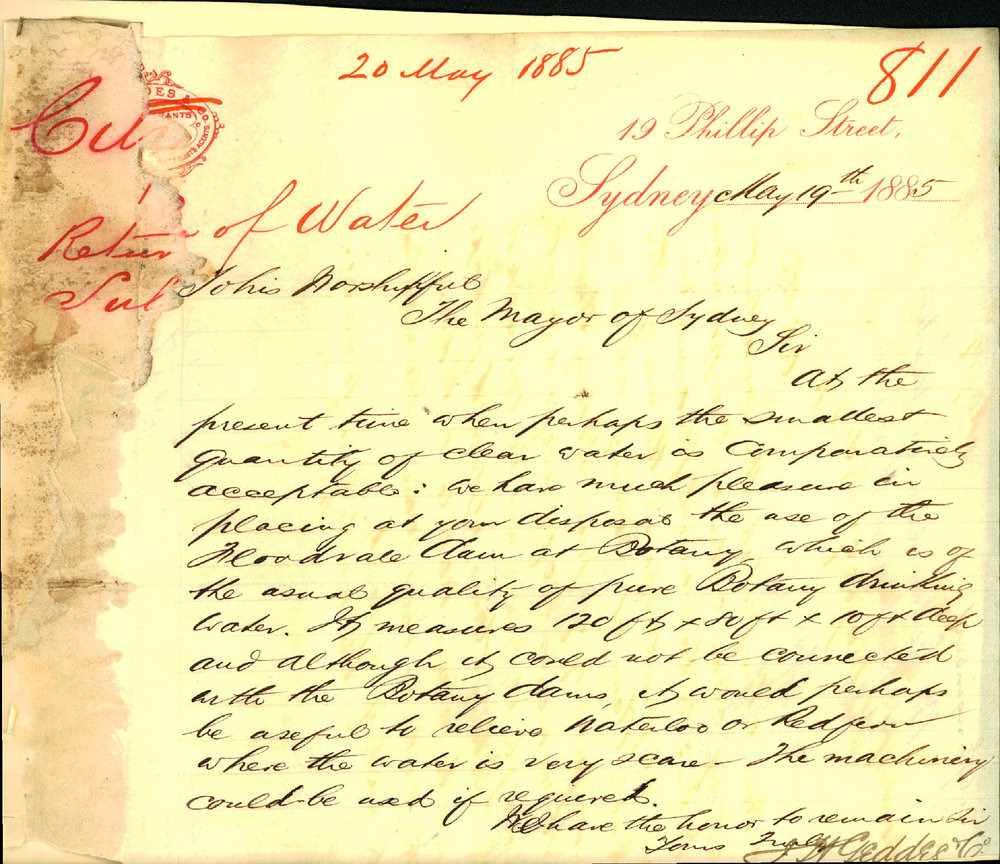 20 May 1885
811
19 Phillip Street,
Sydney May 19th 1885
of Water
To his Worshipful
The Mayor of Sydney
Sir
At the
present time when perhaps the smallest
quantity of clear water is Comparatively
acceptable: we have much pleasure in
placing at your disposal the use of the
Floodvale Dam at Botany which is of
the usual quality of pure Botany drinking
water. It measures 120 ft x 80 ft x 10 ft deep
and although it could not be connected
with the Botany dams, it would perhaps
be useful to relieve Waterloo or Redfern
where the water is very scarce – The machinery
could be used if required.
We have the honor to remain Sir
Yours
Geddes & Co.